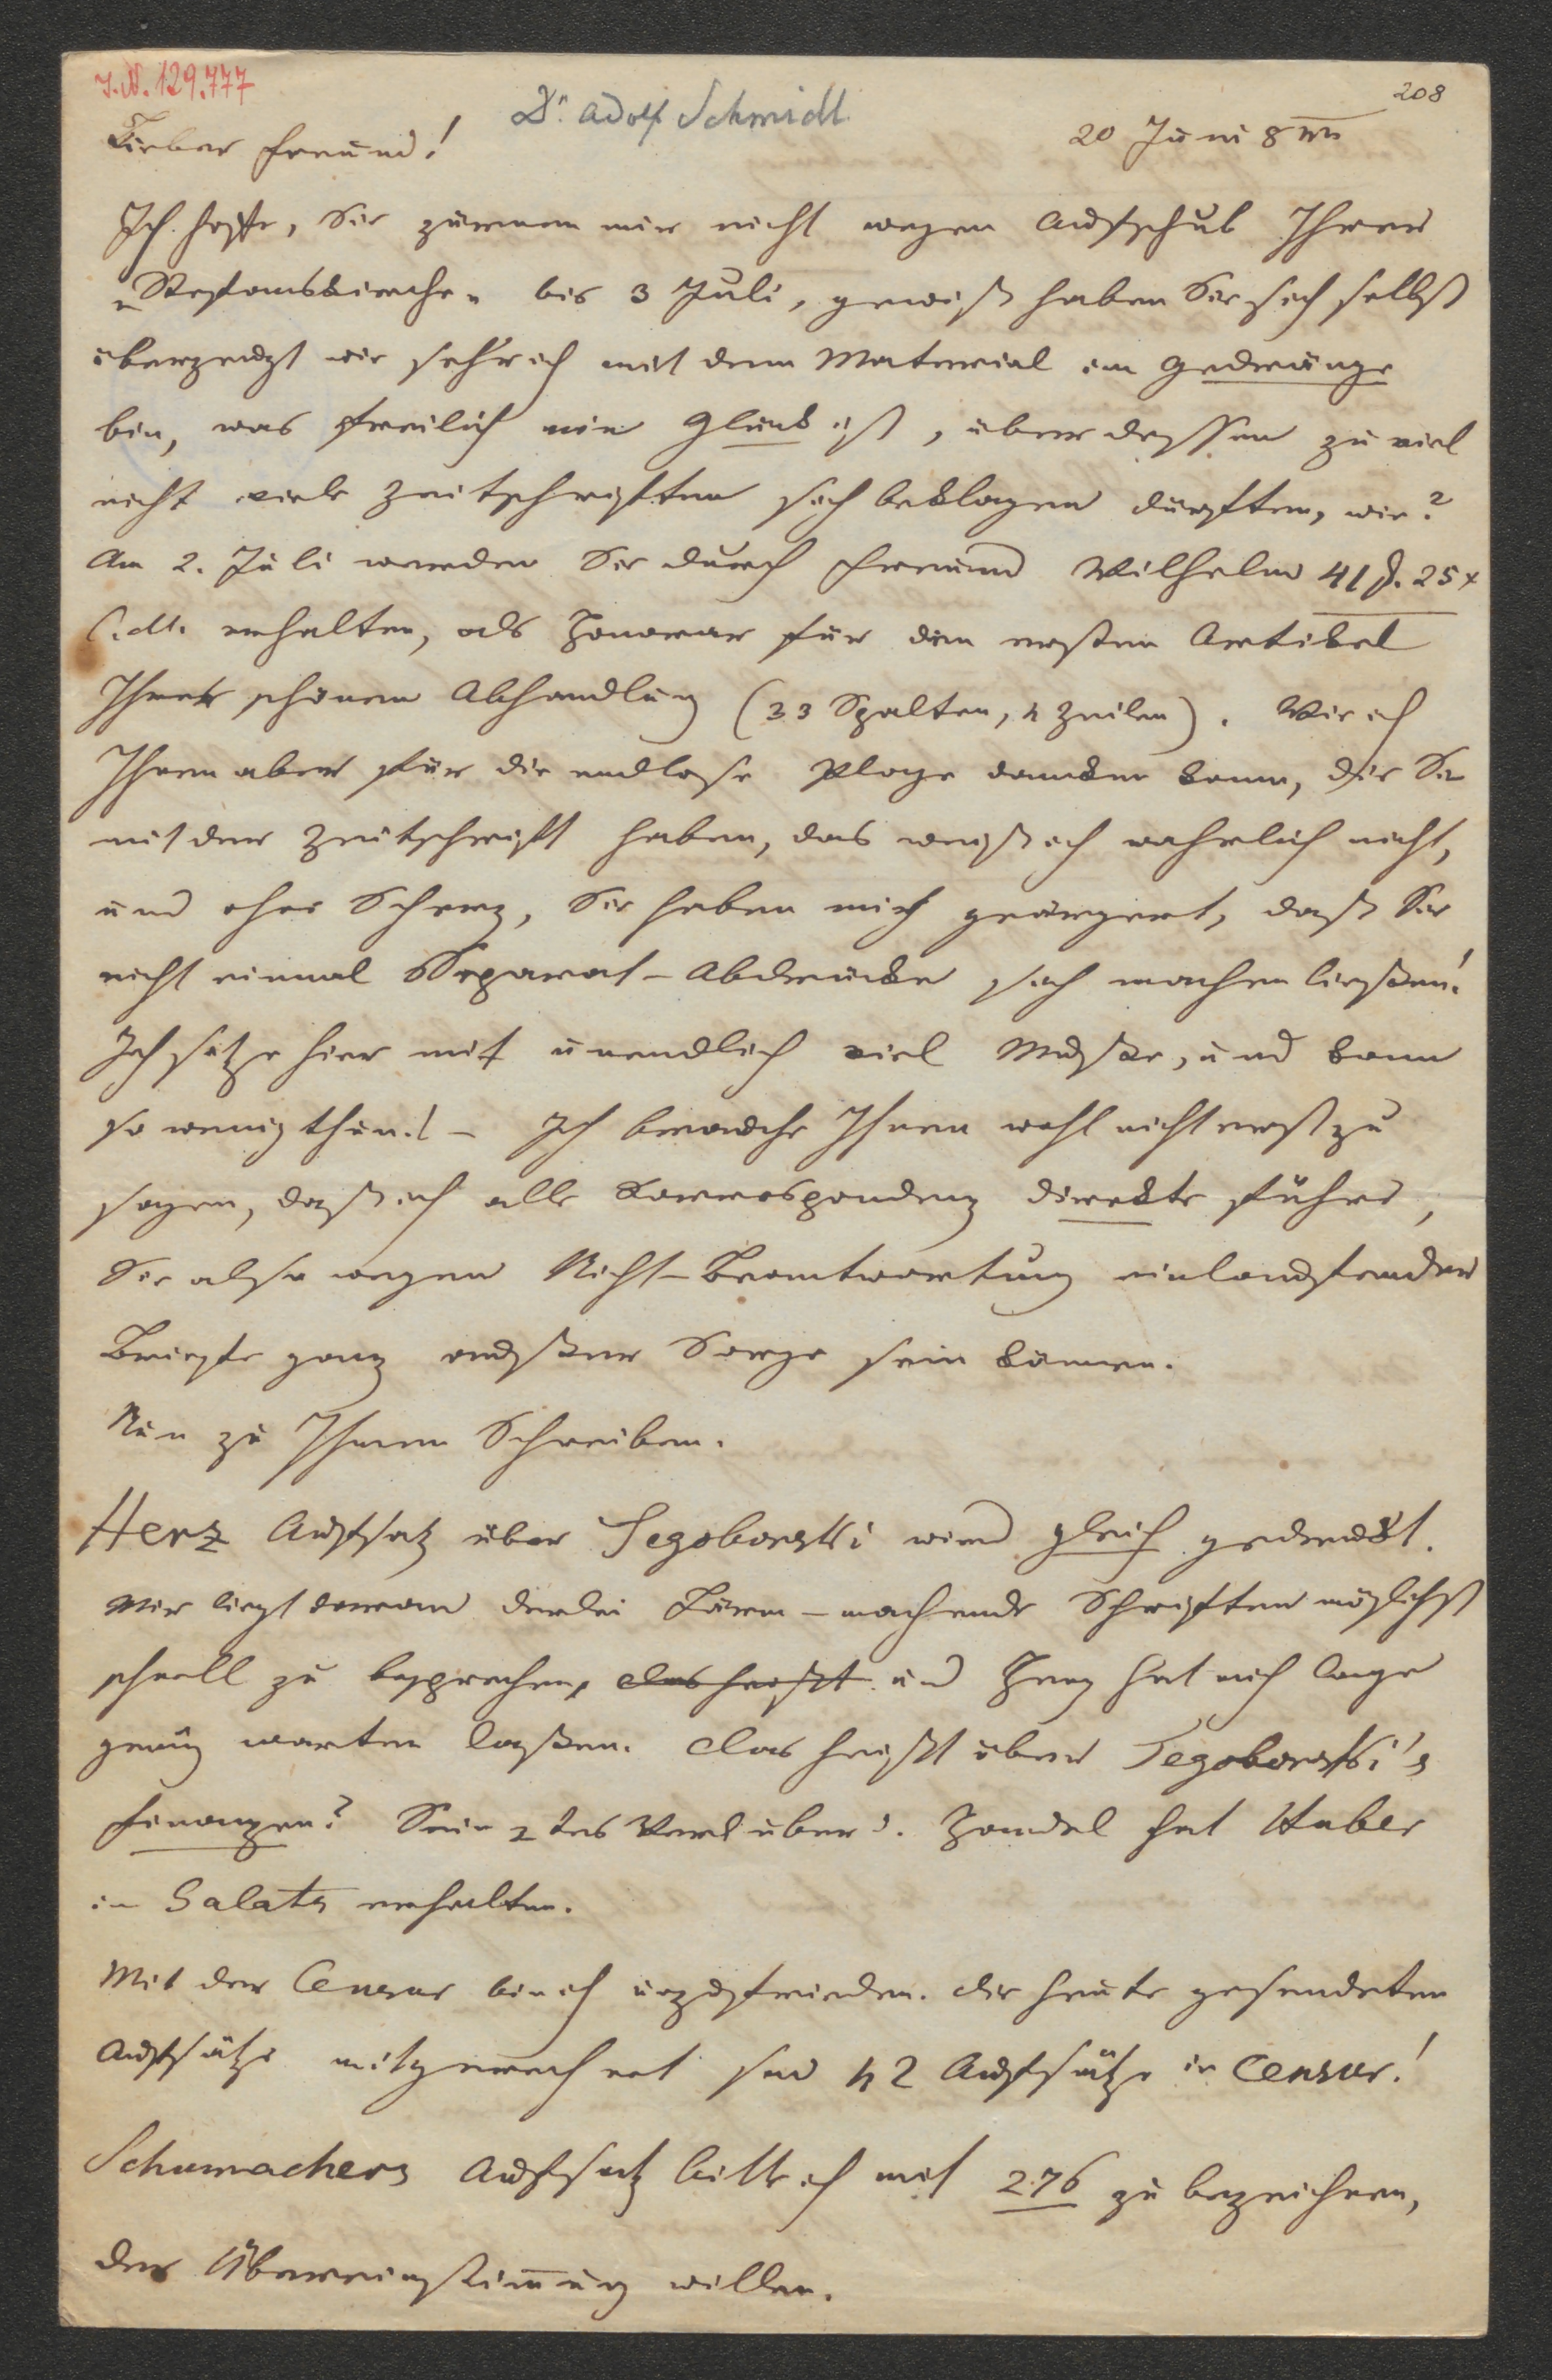 J.N. 129.777
Dr. Adolf Schmidl
208
20 Juni 8
Lieber Freund!
Ich hoffe, Sie zürnen mir nicht wegen Aufschub Ihrer
„Stefanskirche" bis 3 Juli, gewiß haben Sie sich selbst
überzeugt wie sehr ich mit dem Material im Gedränge
bin, was freilich ein Glück ist, über dessen zu viel
nicht viele Zeitschriften sich beklagen dürften, wie?
Am 2. Juli werden Sie durch Freund Wilhelm 41 f. 25 x
C.M. erhalten, als Honorar für den ersten Artikel
Ihrer schönen Abhandlung (33 Spalten, 4 Zeilen). Wie ich
Ihnen aber für die endlose Plage danken kann, die Sie
mit der Zeitschrift haben, das weiß ich wahrlich nicht,
und ohne Scherz, Sie haben mich geärgert, daß Sie
nicht einmal Separat-Abdrücke sich machen ließen!
Ich sitze hier mit unendlich viel Muße, und kann
so wenig thun! – Ich brauche Ihnen wohl nicht erst zu
sagen, daß ich alle Korrespondenz direkte führe,
Sie also wegen Nicht-Beantwortung einlaufender
Briefe ganz außer Sorge sein können.
Nun zu Ihrem Schreiben.
Herz Aufsatz über Tegoborski wird gleich gedruckt.
Mir liegt daran derlei Lärm-machende Schriften möglichst
schnell zu besprechen, das heißt und Herz hat mich lange
genug warten laßen. Das heißt über Tegoborski's
Finanzen? Sein 2tes Werk über d. Handel hat Huber
in Galatz erhalten.
Mit der Censur bin ich unzufrieden. Die heute gesendeten
Aufsätze mitgerechnet sind 42 Aufsätze in Censur!
Schumachers Aufsatz bitte ich mit 276 zu bezeichnen,
der Übereinstimmung willen.